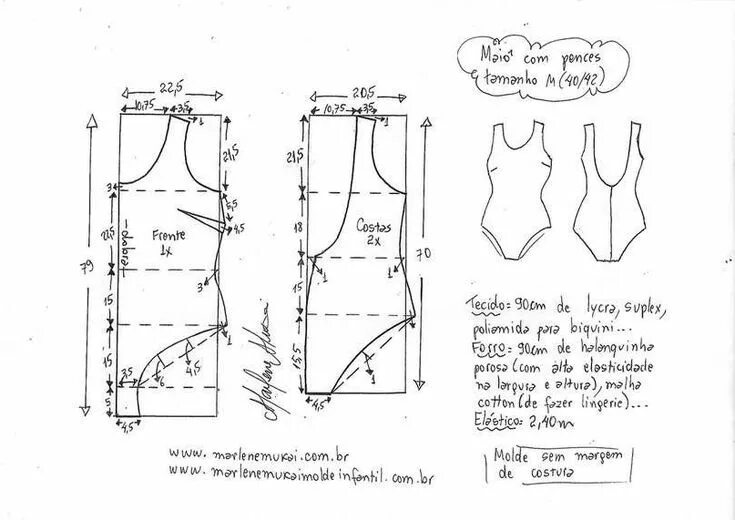 Maiô com pences
tamanho M (40/42)
22,5
10,75
3,5
1
21,5
3
5,5
4,5
22,5
dobra
Frente
1x
79
3
15
1
15
4,5
6
3,5
5
4,5
20,5
10,75
3,5
1
21,5
18
Costas
2x
70
1
1
15
1
15,5
1
4,5
Marlene Mukai
Tecido= 90cm de lycra, suplex,
poliamida para biquini...
Forro= 90cm de helanquinha
porosa (com alta elasticidade
na largura e altura), malha
cotton (de fazer lingerie)...
Elástico= 2,40m
www.marlenemukai.com.br
www.marlenemukaimoldeinfantil.com.br
Molde sem margem
de costura